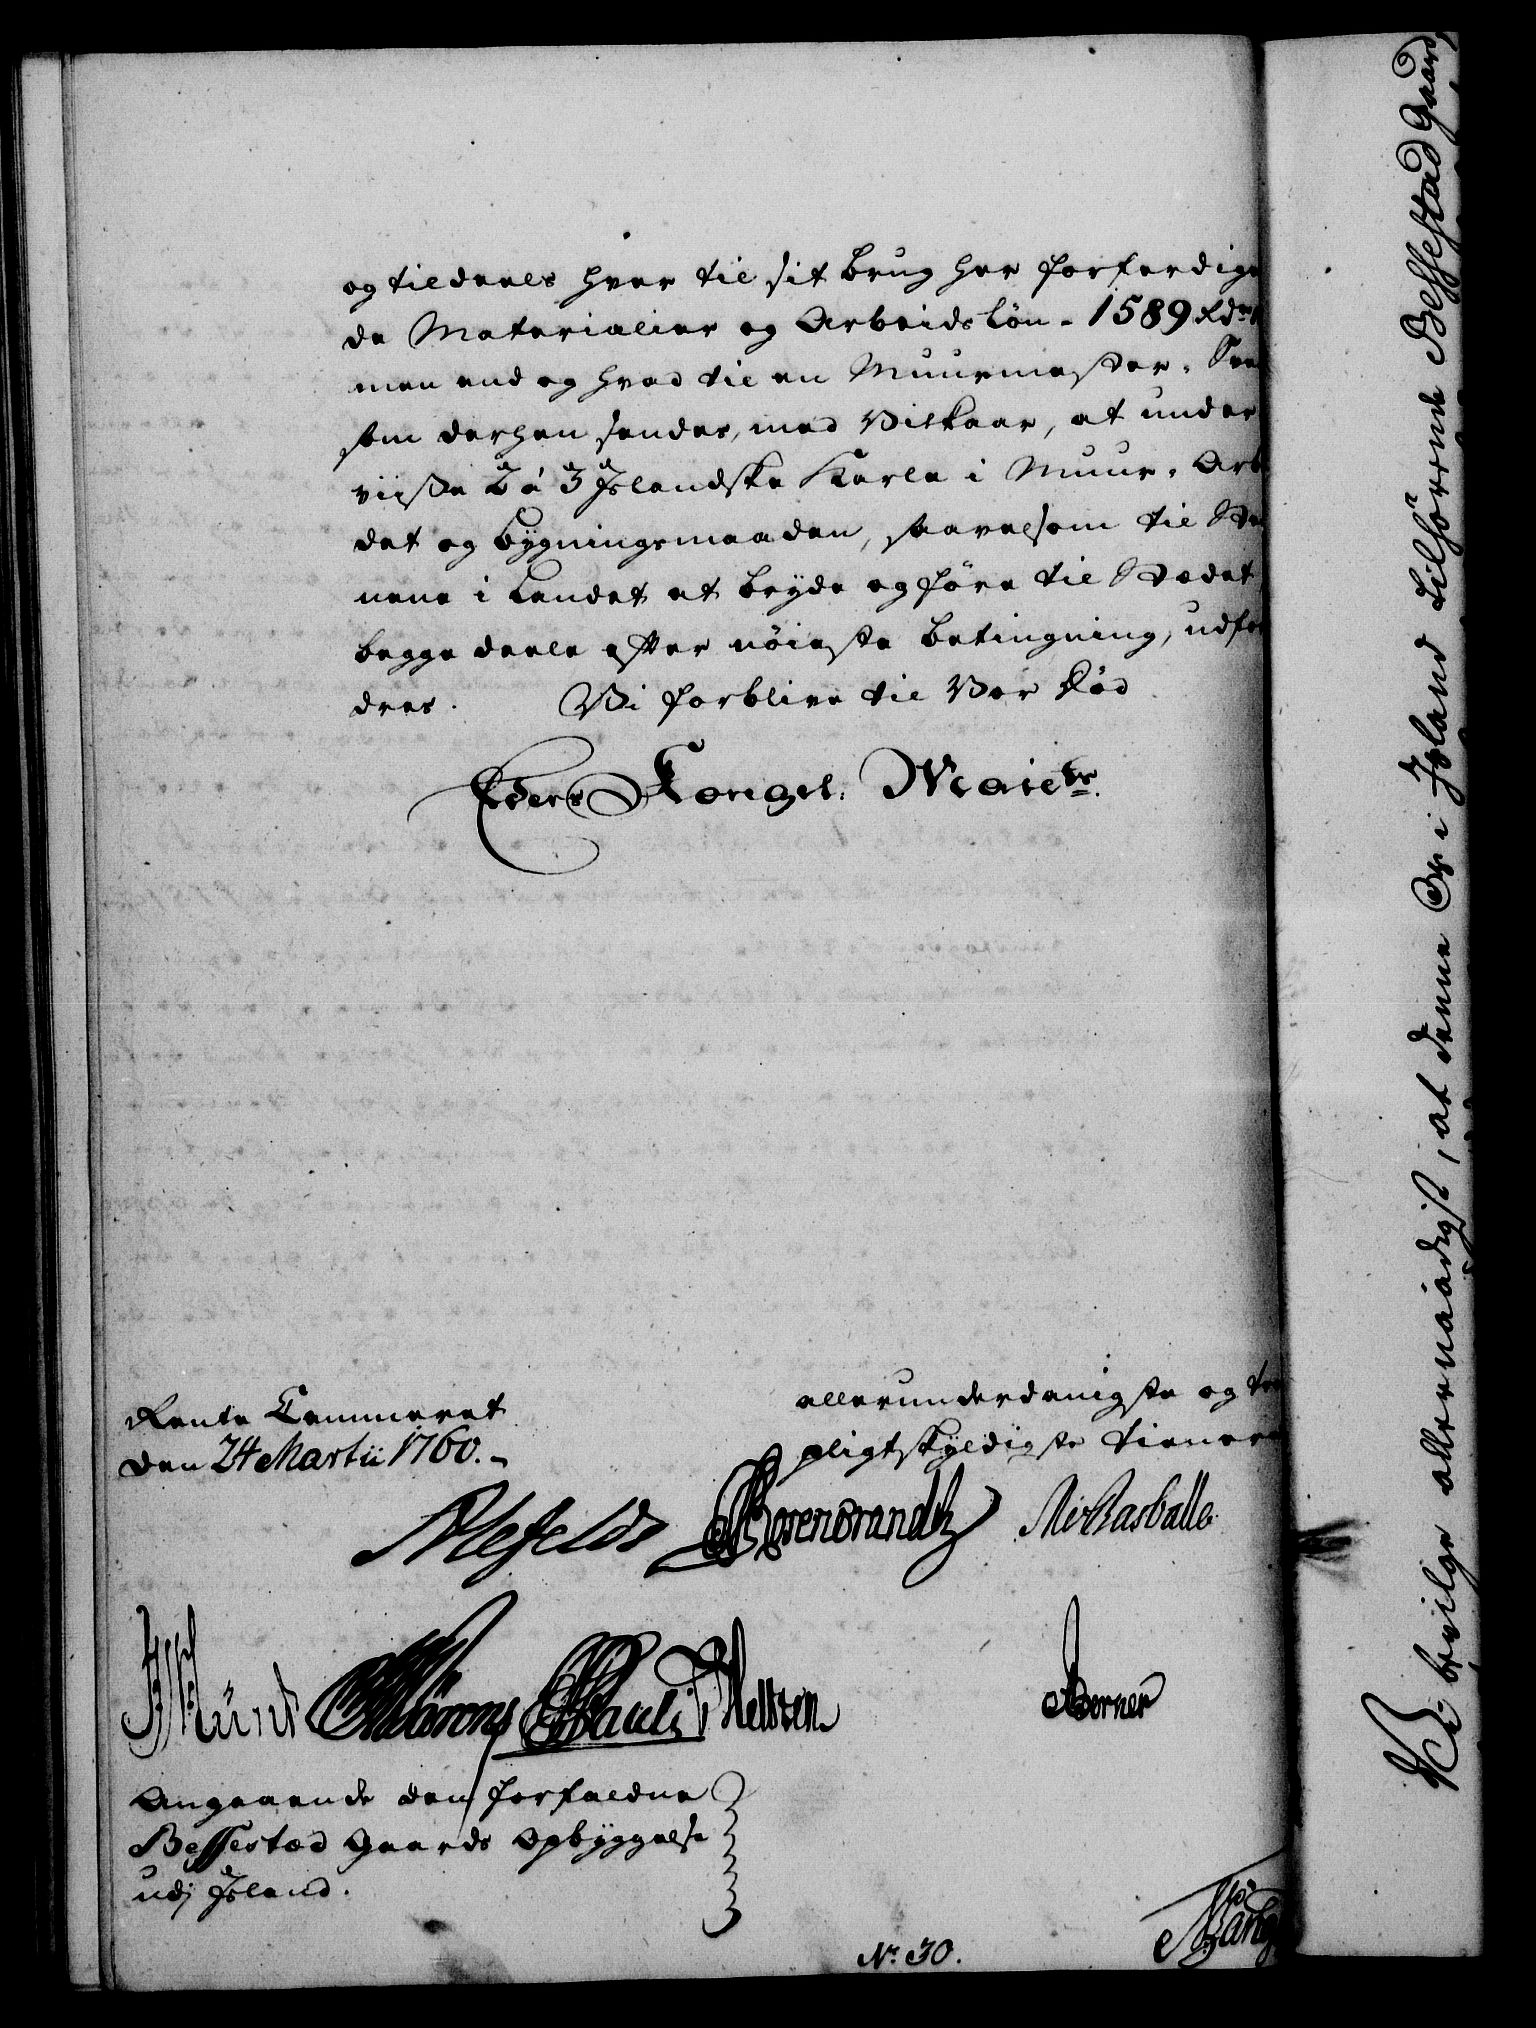 og tildeels hver til sit brug her forferdige
de Materialier og Arbeidslön - 1589 Rd
men end og hvad til en Muurmester-
som derhen sendes, med Vilkaar, at under
viiße 2 á 3 Islandske Karle i Muur-Arb
det og bygningsmaaden, saavelsom til Ste
nene i Landet at bryde og före til Stædet
begge deele efter nöieste betingning, udfor
dres. Vi forblive til Vor Död
Eders Kongel. Maiets.
Rente Cammeret
den 24 Martii 1760.-
allerunderdanigste og tro
pligtskyldigste tienere
Alefeldt Rosencrandtz
Pauli Berner
Angaaende den forfaldne
Bessestæd Gaards Opbyggelse
udj Island.
No. 30.
Vi bevilge allernaadigst, at denne Os i Island tilhörende Bessestad Gaard